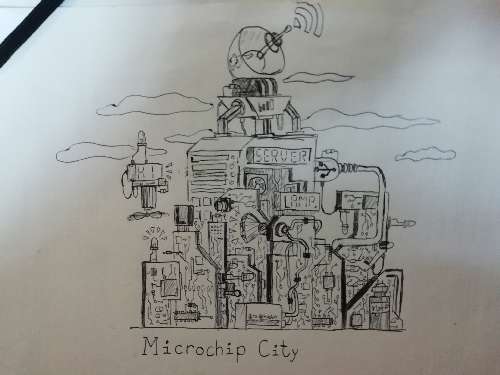 SERVER
LAMP
Microchip City